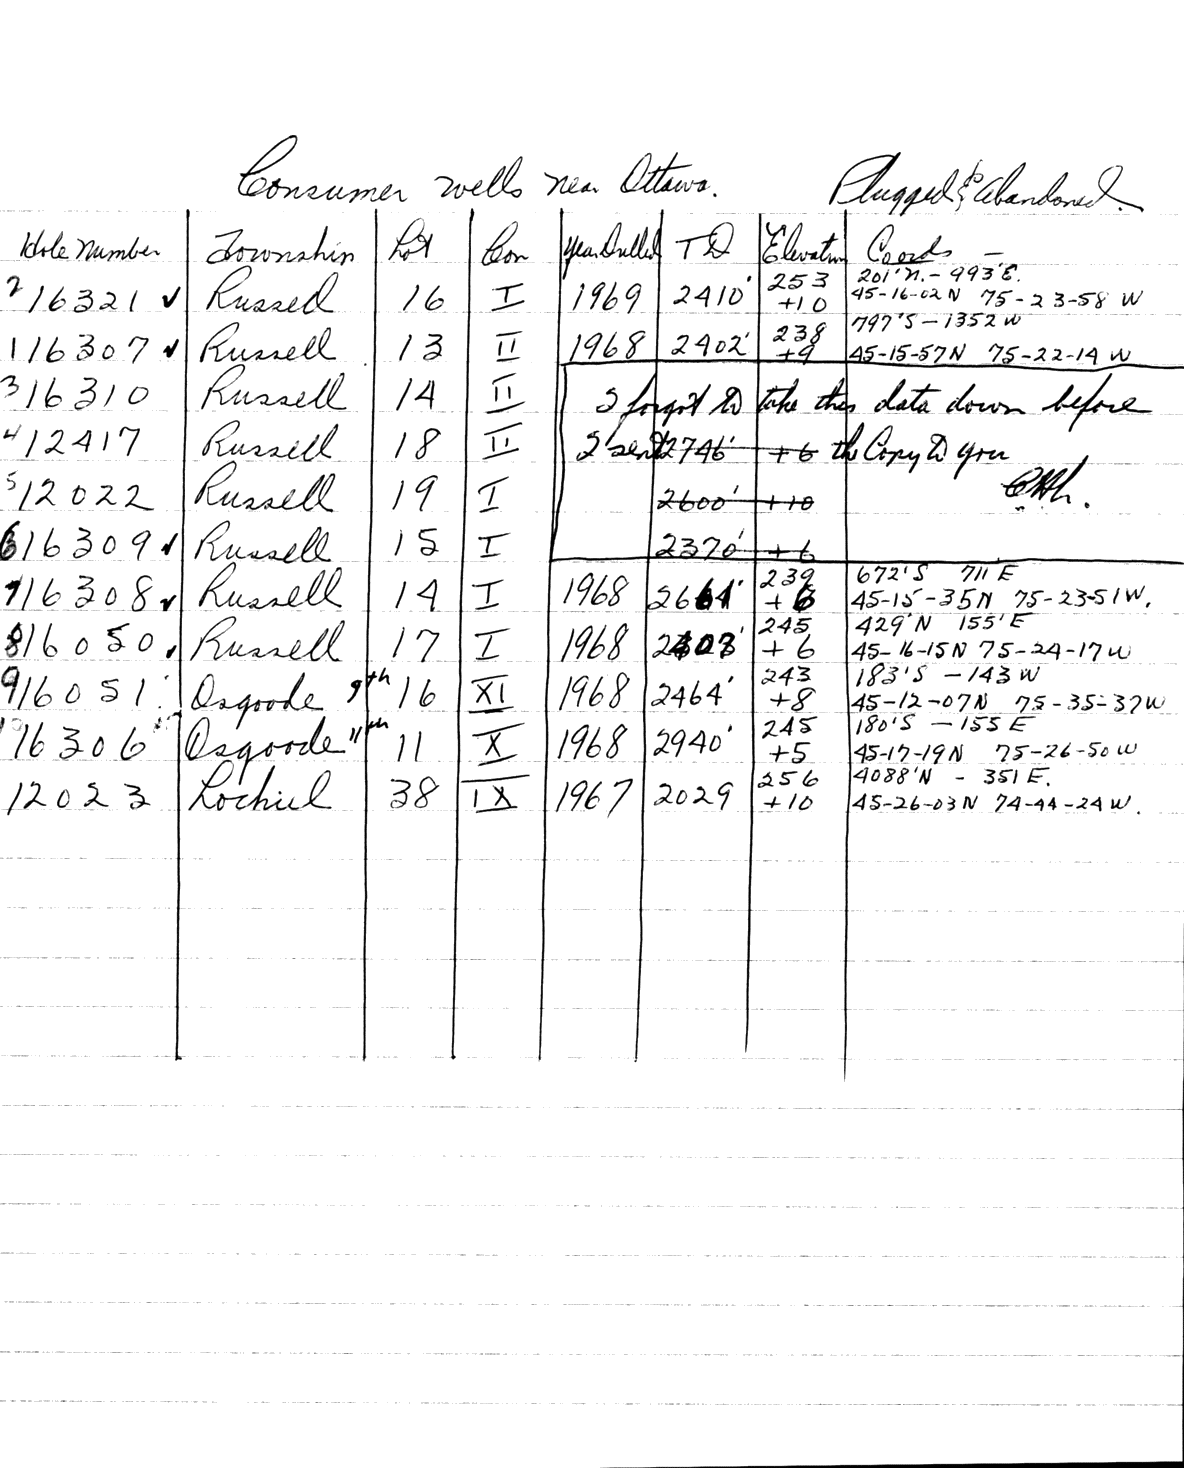 Consumer wells near Ottawa. Plugged & Abandoned.
Hole Number Township Lot Con Year Drilled TD Elevation Coords -
201'N. - 993'E.
2 16321 ✓ Russell 16 I 1969 2410' 253 +10 45-16-02N 75-23-58 W
797'S - 1352 W
1 16307 ✓ Russell 13 II 1968 2402' 238 +9 45-15-57N 75-22-14 W
3 16310 Russell 14 II I forgot to take this data down before
4 12417 Russell 18 II I sent 2746' +6 the Copy to you
5 12022 Russell 19 I 2600' +10
6 16309 ✓ Russell 15 I 2370' +6
672'S 711'E
7 16308 ✓ Russell 14 I 1968 239 +6 45-15-35N 75-23-51W.
429'N 155'E
8 16050 Russell 17 I 1968 245 +6 45-16-15N 75-24-17W
183'S - 143 W
9 16051 Osgoode 9th 16 XI 1968 2464' 243 +8 45-12-07N 75-35-37W
180'S - 155 E
16306 Osgoode 11th 11 X 1968 2940' 245 +5 45-17-19N 75-26-50W
4088'N - 351 E.
12023 Lochiel 38 IX 1967 2029 256 +10 45-26-03N 74-44-24W.